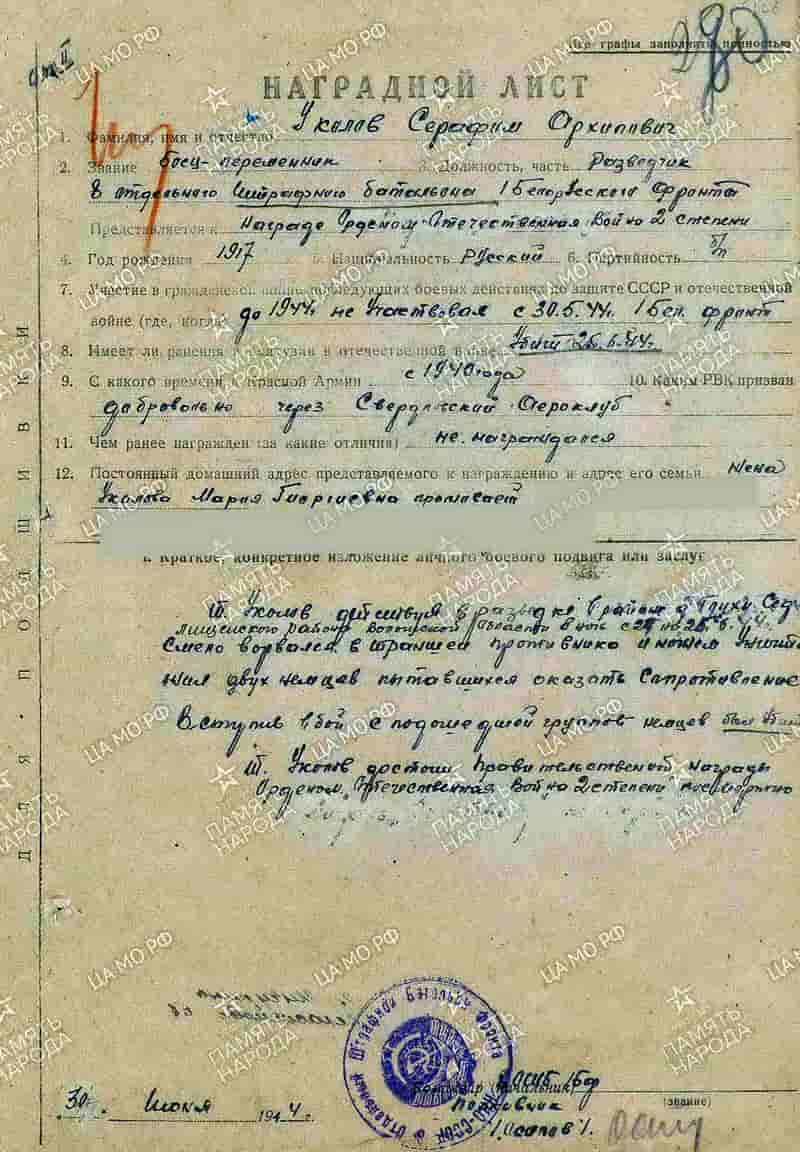 Все графы заполнять полностью
НАГРАДНОЙ ЛИСТ
1. Фамилия, имя и отчество Уколов Серафим Архипович
2. Звание боец-переменник 3. Должность, часть Разведчик
8 отдельного Штрафного батальона 1 Белорусского Фронта
Представляется к Награде Орденом Отечественная Война 2 степени
4. Год рождения 1917 5. Национальность Русский 6. Партийность б/п
7. Участие в гражданской войне, последующих боевых действиях по защите СССР и отечественной
войне (где, когда) до 1944г. не участвовал с 30.5.44г. 1 Бел. фронт
8. Имеет ли ранения и контузии в отечественной войне Убит 25.6.44г.
9. С какого времени в Красной Армии с 1940 года 10. Каким РВК призван
добровольно через Свердловский Аероклуб
11. Чем ранее награжден (за какие отличия) не награждался
12. Постоянный домашний адрес представляемого к награждению и адрес его семьи Жена
Уколова Мария Георгиевна проживает
I. Краткое, конкретное изложение личного боевого подвига или заслуг
Т. Уколов действуя в разведке в районе
района области в ночь с 24 на 25.6.44г.
Смело ворвался в траншеи противника и ножом
жил двух немцев пытавшихся оказать Сопротивление
Вступив в бой с подошедшей группой немцев был
Т. Уколов достоин Правительственной награды
Орденом Отечественная Война 2 степени посмертно
Отдельный Штрафной Батальон Фронта
Командир (начальник) 8 ОШБ 1бф
(звание)
30 июня 1944 г.
Полковник
/Осипов/.
ДЛЯ ПОДШИВКИ
ЦАМО.РФ
ПАМЯТЬ НАРОДА